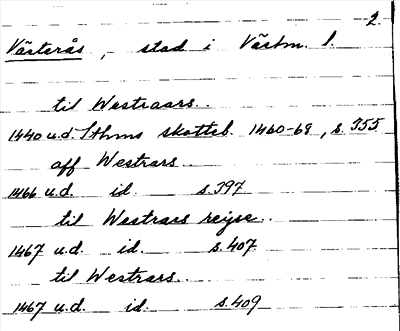 2.
Västerås, stad i Västm. l.
til Westraars..
1440 u.d. Sthms skotteb. 1460-69, s. 355
aff Westrars..
1466 u.d. id. s. 397
til Westrars reyse..
1467 u.d. id. s. 407
til Westrars..
1467 u.d. id. s. 409